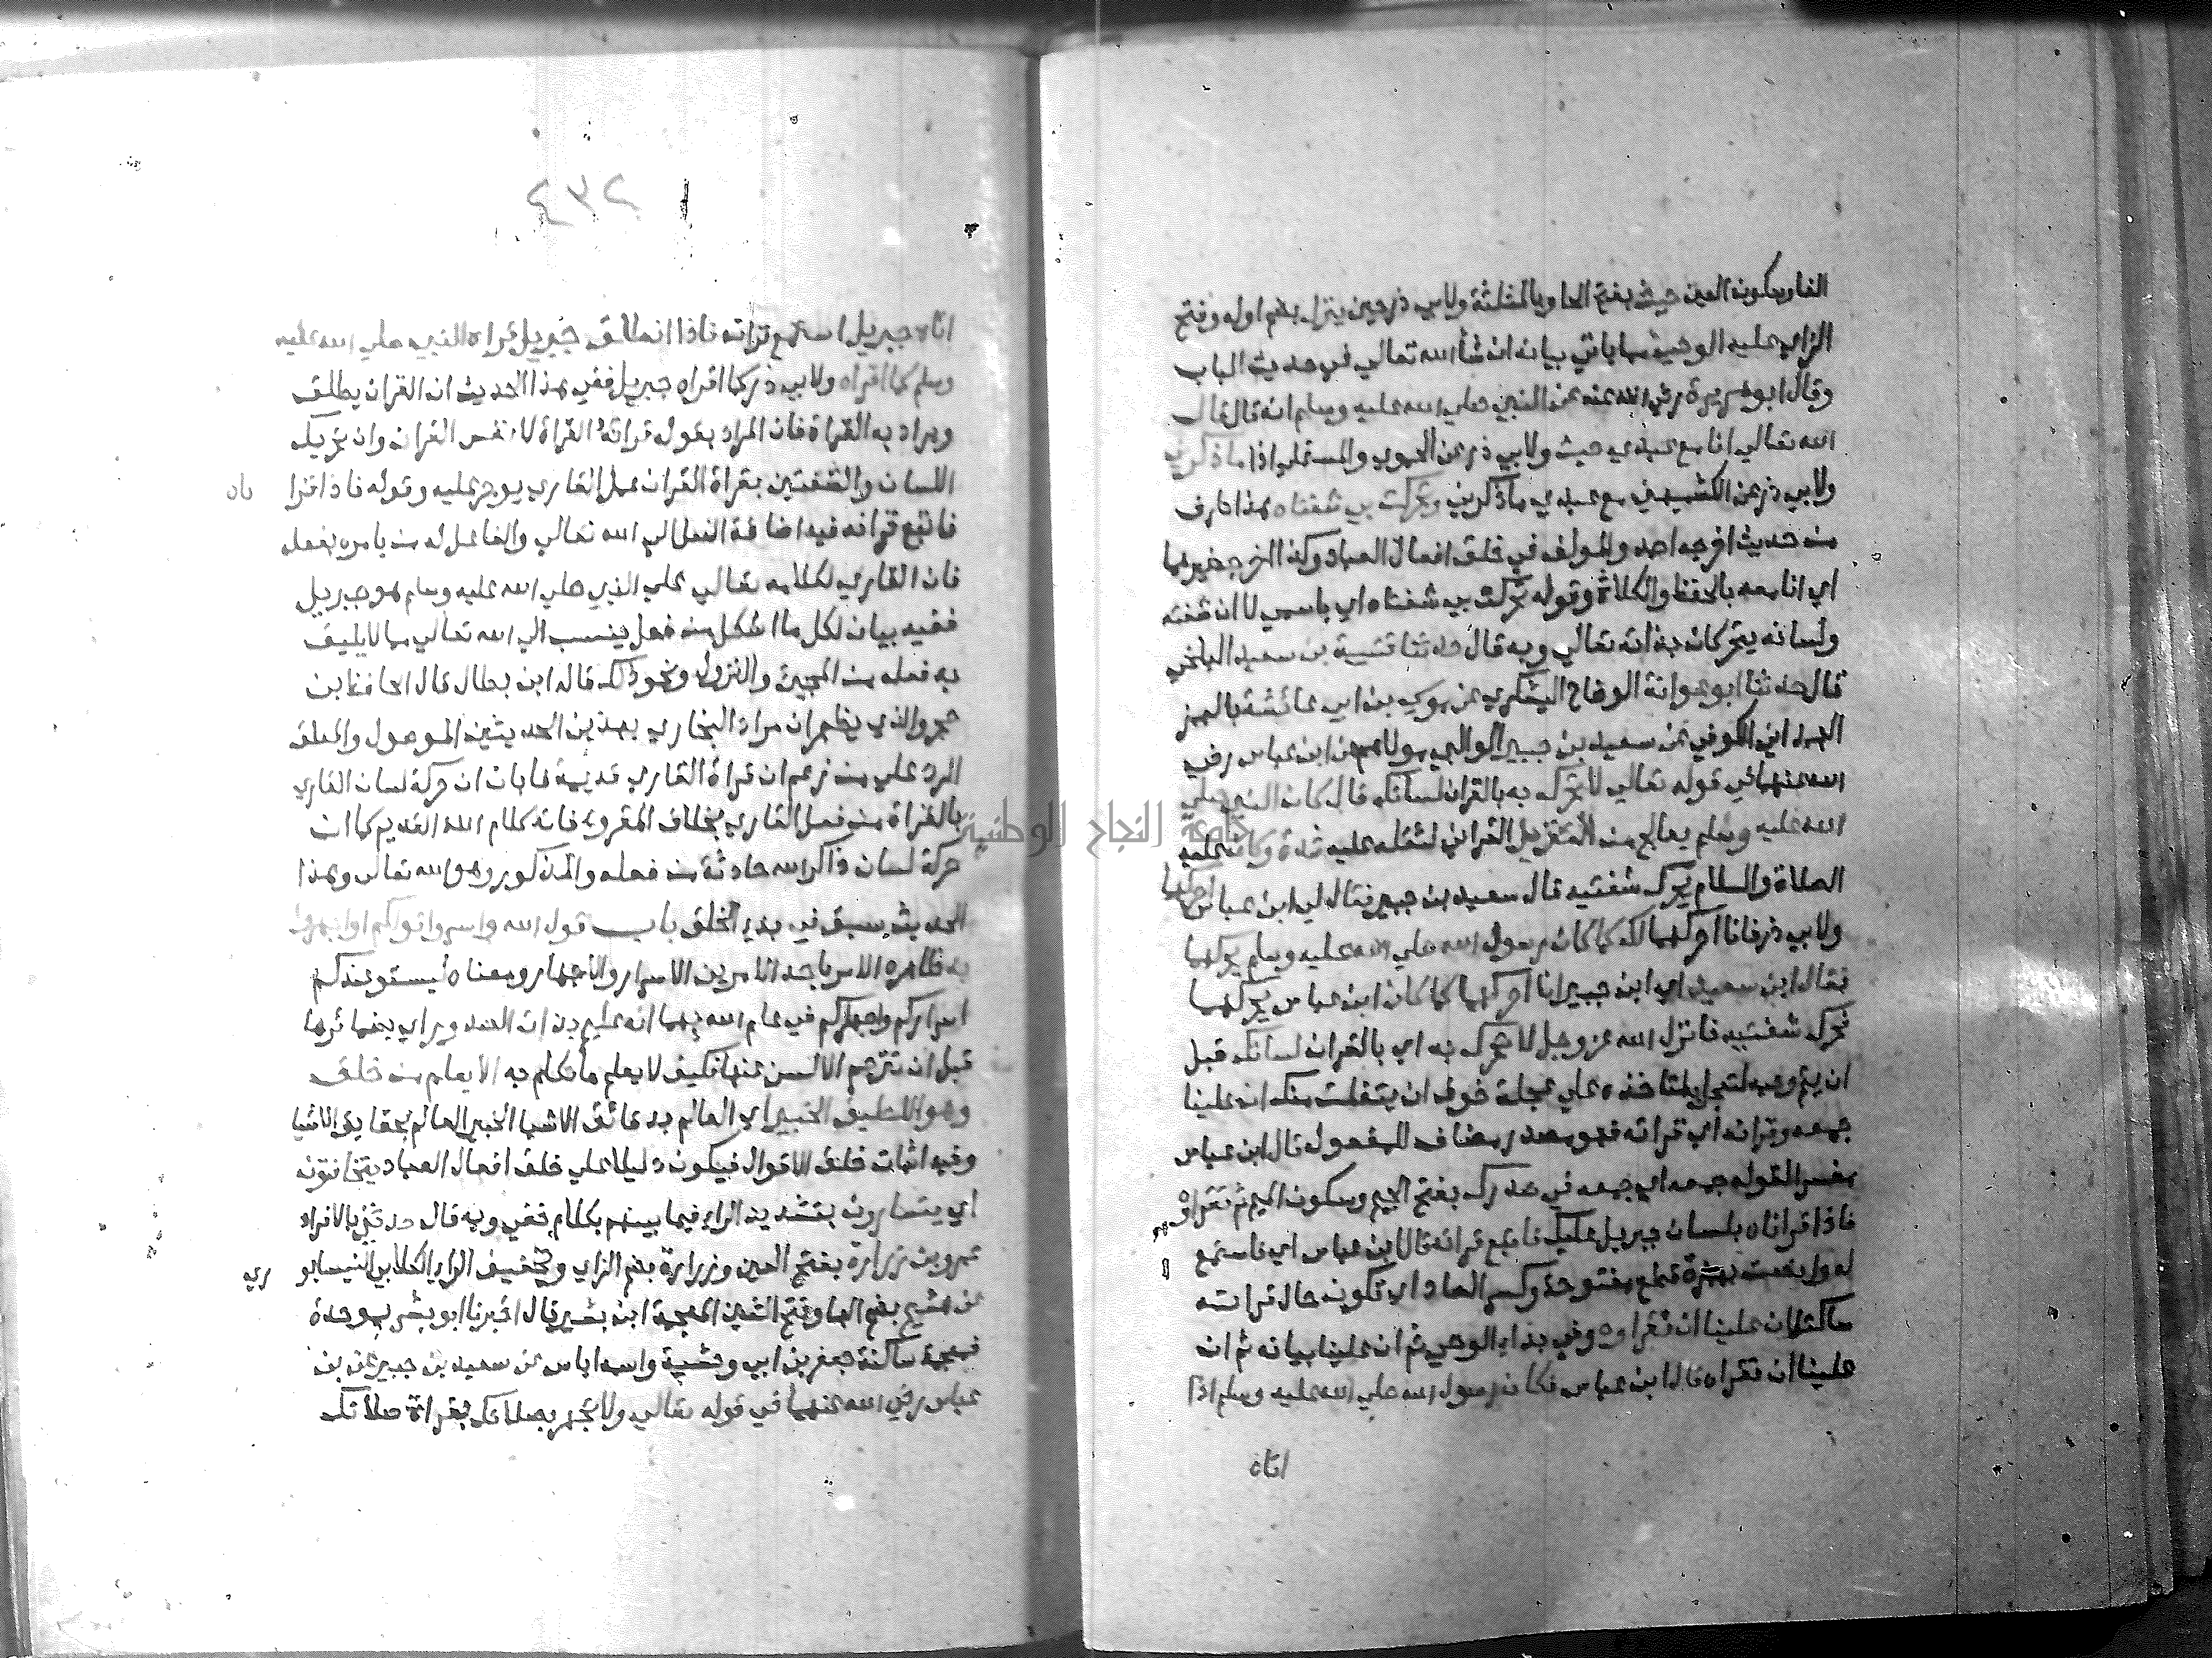 الفا وسكون العين حيث بفتح الحا وبالمثلثة ولابي ذر حين ينزل بضم اوله وفتح
الزاي عليه الوحي مما ياتي بيانه ان شا الله تعالي في حديث الباب
وقال ابو هريرة رضي الله عنه عن النبي صلي الله عليه وسلم انه قال قال
الله تعالي انا مع عبدي حيث ولابي ذر عن الحموي والمستملي اذا ما ذكرني
ولابي ذر عن الكشميهني مع عبدي ما ذكرني وتحركت بي شفتاه هذا طرف
من حديث اخرجه احمد والمولف في خلق افعال العباد وكذا اخرجه غيرهما
اي انا معه بالحفظ والكلاة وقوله تحركت بي شفتاه اي باسمي لا ان شفته
ولسانه يتحركان بذاته تعالي وبه قال حدثنا قتيبة بن سعيد البلخي
قال حدثنا ابو عوانة الوضاح اليشكري عن موسي بن ابي عائشة بالهمز
الهمداني الكوفي عن سعيد بن جبير الوالبي مولاهم عن ابن عباس رضي
الله عنهما في قوله تعالي لا تحرك به بالقران لسانك قال كان النبي صلي
الله عليه وسلم يعالج من التنزيل القراني لثقله عليه شدة وكان عليه
الصلاة والسلام يحرك شفتيه قال سعيد بن جبير فقال لي ابن عباس احركهما
ولابي ذر فانا احركهما لك كما كان رسول الله صلي الله عليه وسلم يحركهما
فقال ابن سعيد اي ابن جبير انا احركهما كما كان ابن عباس يحركهما
فحرك شفتيه فانزل الله عز وجل لا تحرك به اي بالقران لسانك قبل
ان يتم وحيه لتعجل به لتاخذه علي عجلة خوف ان يتفلت منك ان علينا
جمعه وقرانه اي قراته فهو مصدر مضاف للمفعول قال ابن عباس
مفسرا لقوله جمعه اي جمعه في صدرك بفتح الجيم وسكون الميم ثم تقراوه
فاذا قراناه بلسان جبريل عليك فاتبع قرانه قال ابن عباس اي فاستمع
له وانصت بهمزة قطع مفتوحة وكسر الصاد اي تكون حال قراته
ساكتا ان علينا ان تقراه وفي بداء الوحي ثم ان علينا بيانه ثم ان
علينا ان تقراه قال ابن عباس فكان رسول الله صلي الله عليه وسلم اذا
اتاه
٤٣٢
اتاه جبريل استمع قراته فاذا انطلق جبريل قراه النبي صلي الله عليه
وسلم كما اقراه ولابي ذر كما اقراه جبريل ففي هذا الحديث ان القران يطلق
ويراد به القراة فان المراد بقوله قرانه القراة لا نفس القران وان تحريك
اللسان والشفتين بقراة القران عمل القاري يوجر عليه وقوله فاذا قرا ناه
فاتبع قرانه فيه اضافة الفعل الي الله تعالي والفاعل له من يامره بفعله
فان القاري لكلامه تعالي علي النبي صلي الله عليه وسلم هو جبريل
ففيه بيان لكل ما اشكل من فعل ينسب الي الله تعالي مما لا يليق
به فعله من المجيئ والنزول ونحو ذلك قاله ابن بطال قال الحافظ ابن
حجر والذي يظهر ان مراد البخاري بهذين الحديثين الموصول والمعلق
الرد علي من زعم ان قراة القاري قديمة فابان ان حركة لسان القاري
بالقراة من فعل القاري بخلاف المقروء فانه كلام الله القديم كما ان
حركة لسان ذاكر الله حادثة من فعله والمذكور وهو الله تعالي وهذا
الحديث سبق في بدء الخلق باب قول الله واسروا قولكم او اجهروا
به ظاهره الامر باحد الامرين الاسرار والاجهار ومعناه ليستو عندكم
اسراركم واجهاركم في علم الله بهما انه عليم بذات الصدور اي بضمائرها
قبل ان تترجم الالسن عنها فكيف لا يعلم ما تكلم به الا يعلم من خلق
وهو اللطيف الخبير اي العالم بدقائق الاشيا الخبير العالم بحقايق الاشيا
وفيه اثبات خلق الاقوال فيكون دليلا علي خلق افعال العباد يتخافتون
اي يتسارون بتشديد الراء فيما بينهم بكلام خفي وبه قال حدثني بالافراد
عمرو بن زرارة بفتح العين وزرارة بضم الزاي وتخفيف الراء الكلابي النيسابوري
عن هشيم بضم الها وفتح الشين المعجمة ابن بشير قال اخبرنا ابو بشر بموحدة
فمعجمة ساكنة جعفر بن ابي وحشية واسمه اياس عن سعيد بن جبير عن بن
عباس رضي الله عنهما في قوله تعالي ولا تجهر بصلاتك بقراة صلاتك
جامعة النجاح الوطنية